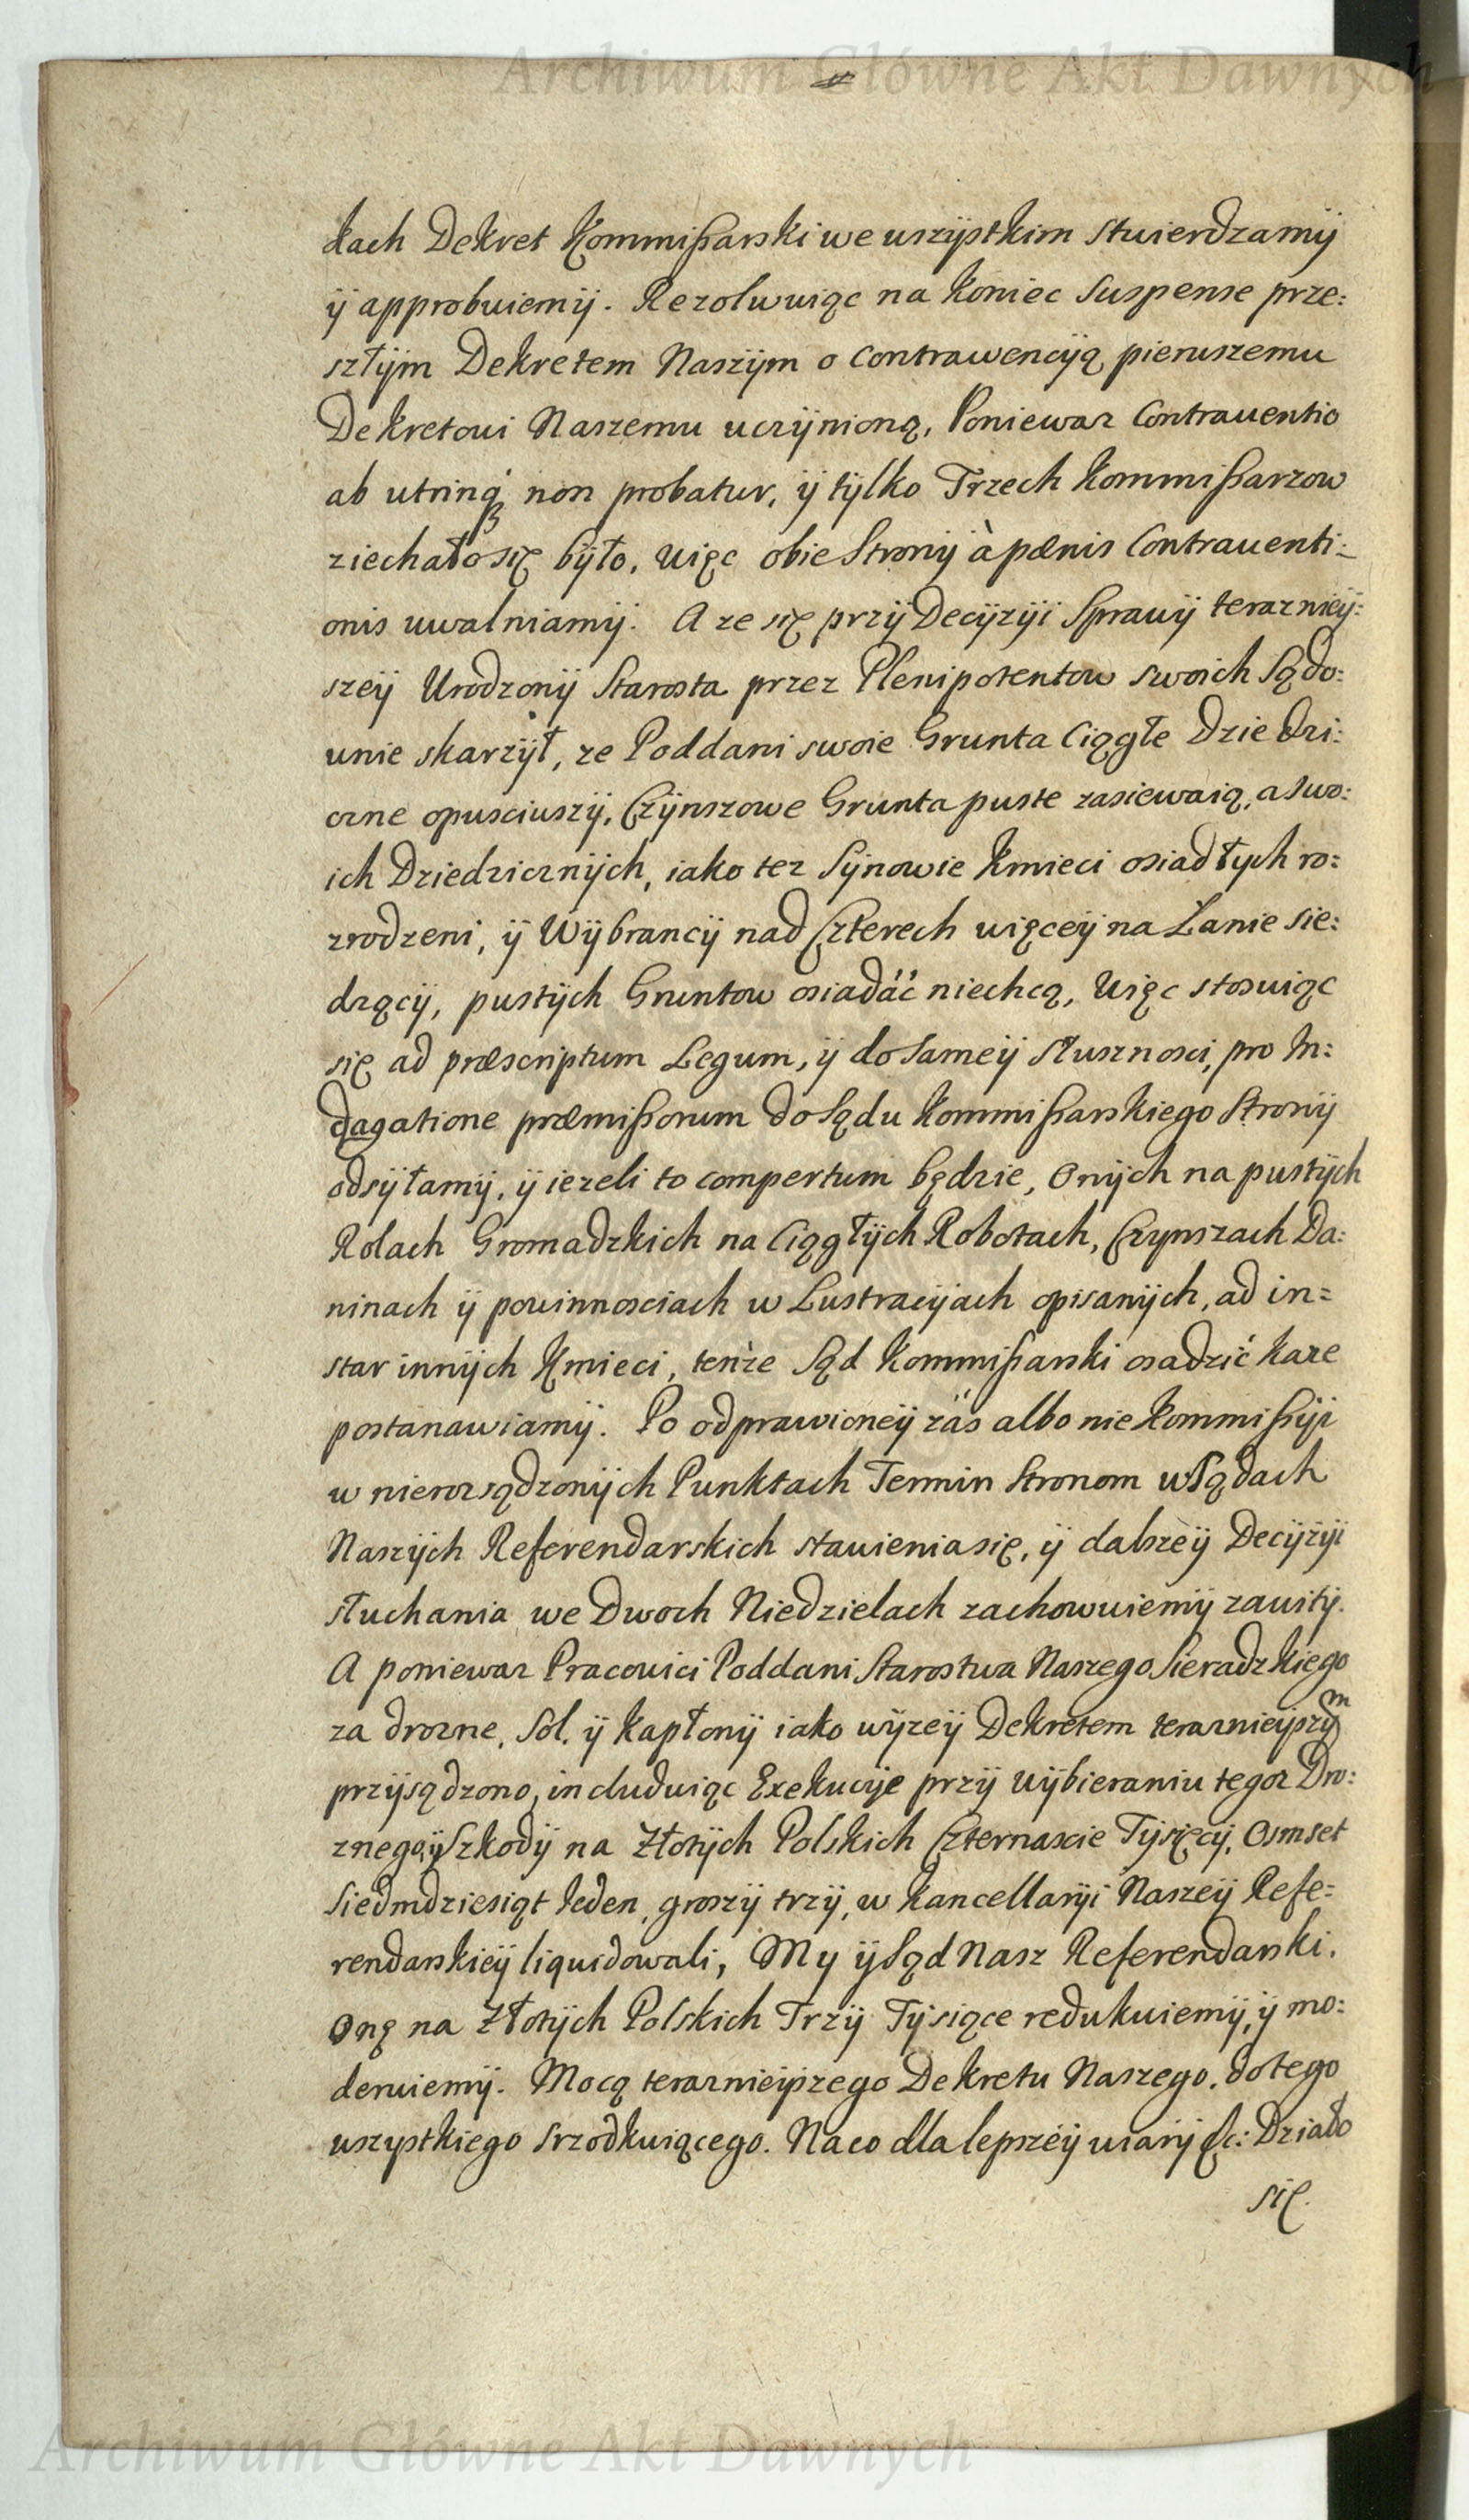 Archiwum Główne Akt Dawnych
kach Dekret Kommißarski we wszÿstkim stwierdzamÿ
ÿ approbuiemÿ. Rezolwuiąc na koniec Suspense prze:
szłÿm Dekretem Naszÿm o Contrawencÿą pierwszemu
Dekretowi Naszemu uczÿnioną, Poniewaz Contraventio
ab utrinq; non probatur, ÿ tÿlko Trzech Kommißarzow
ziechało się bÿło, więc obie Stronÿ à pænis Contraventi:
onis uwalniamÿ. A ze się przÿ Decÿzÿi Sprawÿ terazniéÿ:
szeÿ Urodzonÿ Starosta przez Plenipotentow swoich Sądo:
wnie skarzÿł, ze Poddani swoie Grunta Ciągłe Dziedzi:
czne opusciwszÿ, Czÿnszowe Grunta puste zasiewaią, a swo:
ich Dziedzicznÿch, iako tez Sÿnowie Kmieci osiadłych ro:
zrodzeni, ÿ Wÿbrancÿ nad Czterech więceÿ na Łanie sie:
dzącÿ, pustÿch Gruntow osiadáć niechcą, Więc stosuiąc
się ad præscriptum Legum, ÿ do Sameÿ słusznosci, pro In:
dagatione præmißorum do Sądu Kommißarskiego Stronÿ
odsÿłamÿ, ÿ iezeli to compertum będzie, Onÿch na pustÿch
Rolach Gromadzkich na Ciągłÿch Robotach, Czynszach Da:
ninach ÿ powinnosciach w Lustracÿach opisanÿch, ad in=
star innÿch Kmieci, tenze Sąd Kommißarski osadzić kaze
postanawiamÿ. Po odprawioneÿ zás albo nie Kommißÿi
w nierozsądzonÿch Punktach Termin Stronom w Sądach
Naszÿch Referendarskich stawienia się, ÿ dalszeÿ Decÿzÿi
słuchania we Dwoch Niedzielach zachowuiemÿ zawitÿ.
A poniewaz Pracowici Poddani Starostwa Naszego Sieradzkiego
za drozne, Sól, ÿ kapłonÿ iako wÿzeÿ Dekretem terazniejszÿm
przÿsądzono, includuiąc Exekucÿe przÿ wÿbieraniu tegoz Dro:
znego, ÿ Szkodÿ na Złotÿch Polskich Czternascie Tÿsięcÿ, Osmset
Siedmdziesiąt Jeden, groszÿ trzÿ, w Kancellarÿi Naszeÿ Refe:
rendarskieÿ liquidowali, My ÿ Sąd Nasz Referendarski,
Onę na Złotÿch Polskich Trzÿ Tÿsiące redukuiemÿ, ÿ mo:
deruiemÿ. Mocą terazniejszego Dekretu Naszego, do tego
wszystkiego srzodkuiącego. Na co dla lepszéÿ wiarÿ &c: Działo
się.
Archiwum Główne Akt Dawnych